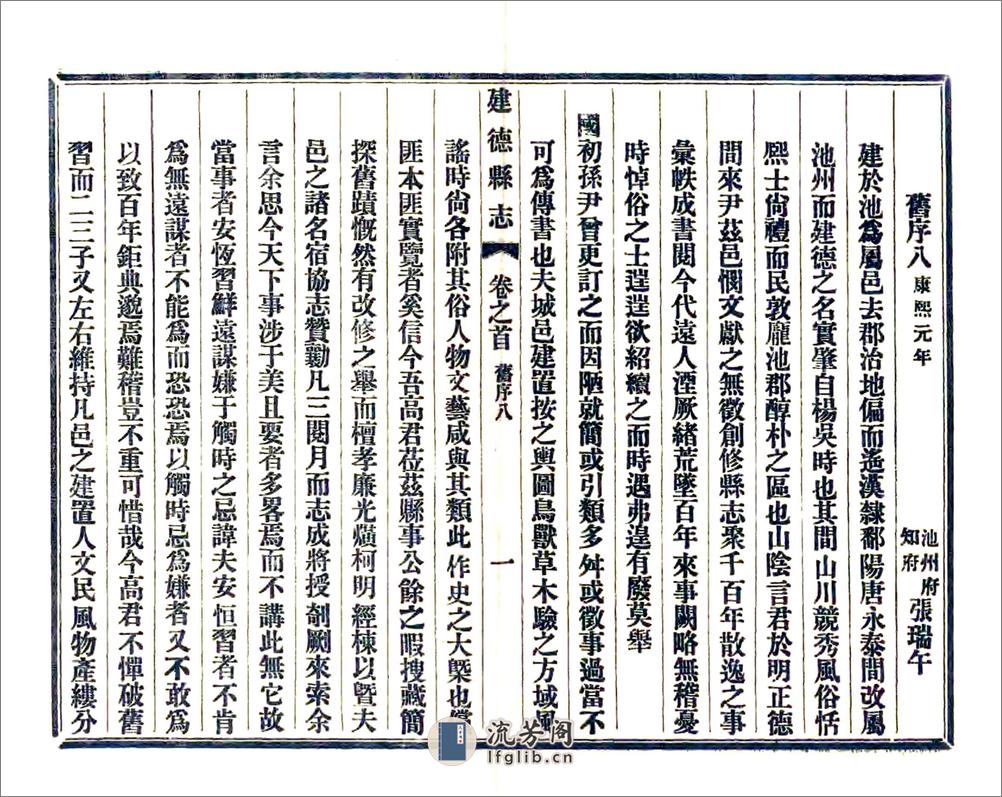 舊序八 康熙元年 池州府知府 張瑞午
建於池爲屬邑去郡治地偏而遙漢隸鄱陽唐永泰間改屬
池州而建德之名實肇自楊吳時也其間山川競秀風俗恬
熙士尙禮而民敦龐池郡醇朴之區也山陰言君於明正德
間來尹茲邑憫文獻之無徵創修縣志聚千百年散逸之事
彙帙成書閱今代遠人湮厥緒荒墜百年來事闕略無稽憂
時悼俗之士逞逞欲紹續之而時遇弗遑有廢莫舉
國初孫尹曾更訂之而因陋就簡或引類多舛或徵事過當不
可爲傳書也夫城邑建置按之輿圖鳥獸草木驗之方域風
建德縣志 卷之首 舊序八 一
謠時尙各附其俗人物文藝咸與其類此作史之大槩也
匪本匪實覽者奚信今吾高君莅茲縣事公餘之暇搜藏簡
探舊蹟慨然有改修之舉而檀孝廉光熿柯明經棟以暨夫
邑之諸名宿協志贊勷凡三閱月而志成將授剞劂來索余
言余思今天下事涉于美且要者多畧焉而不講此無它故
當事者安恆習鮮遠謀嫌于觸時之忌諱夫安恒習者不肯
爲無遠謀者不能爲而恐恐焉以觸時忌爲嫌者又不敢爲
以致百年鉅典邈焉難稽豈不重可惜哉今高君不憚破舊
習而二三子又左右維持凡邑之建置人文民風物產縷分
流芳阁
lfglib.cn